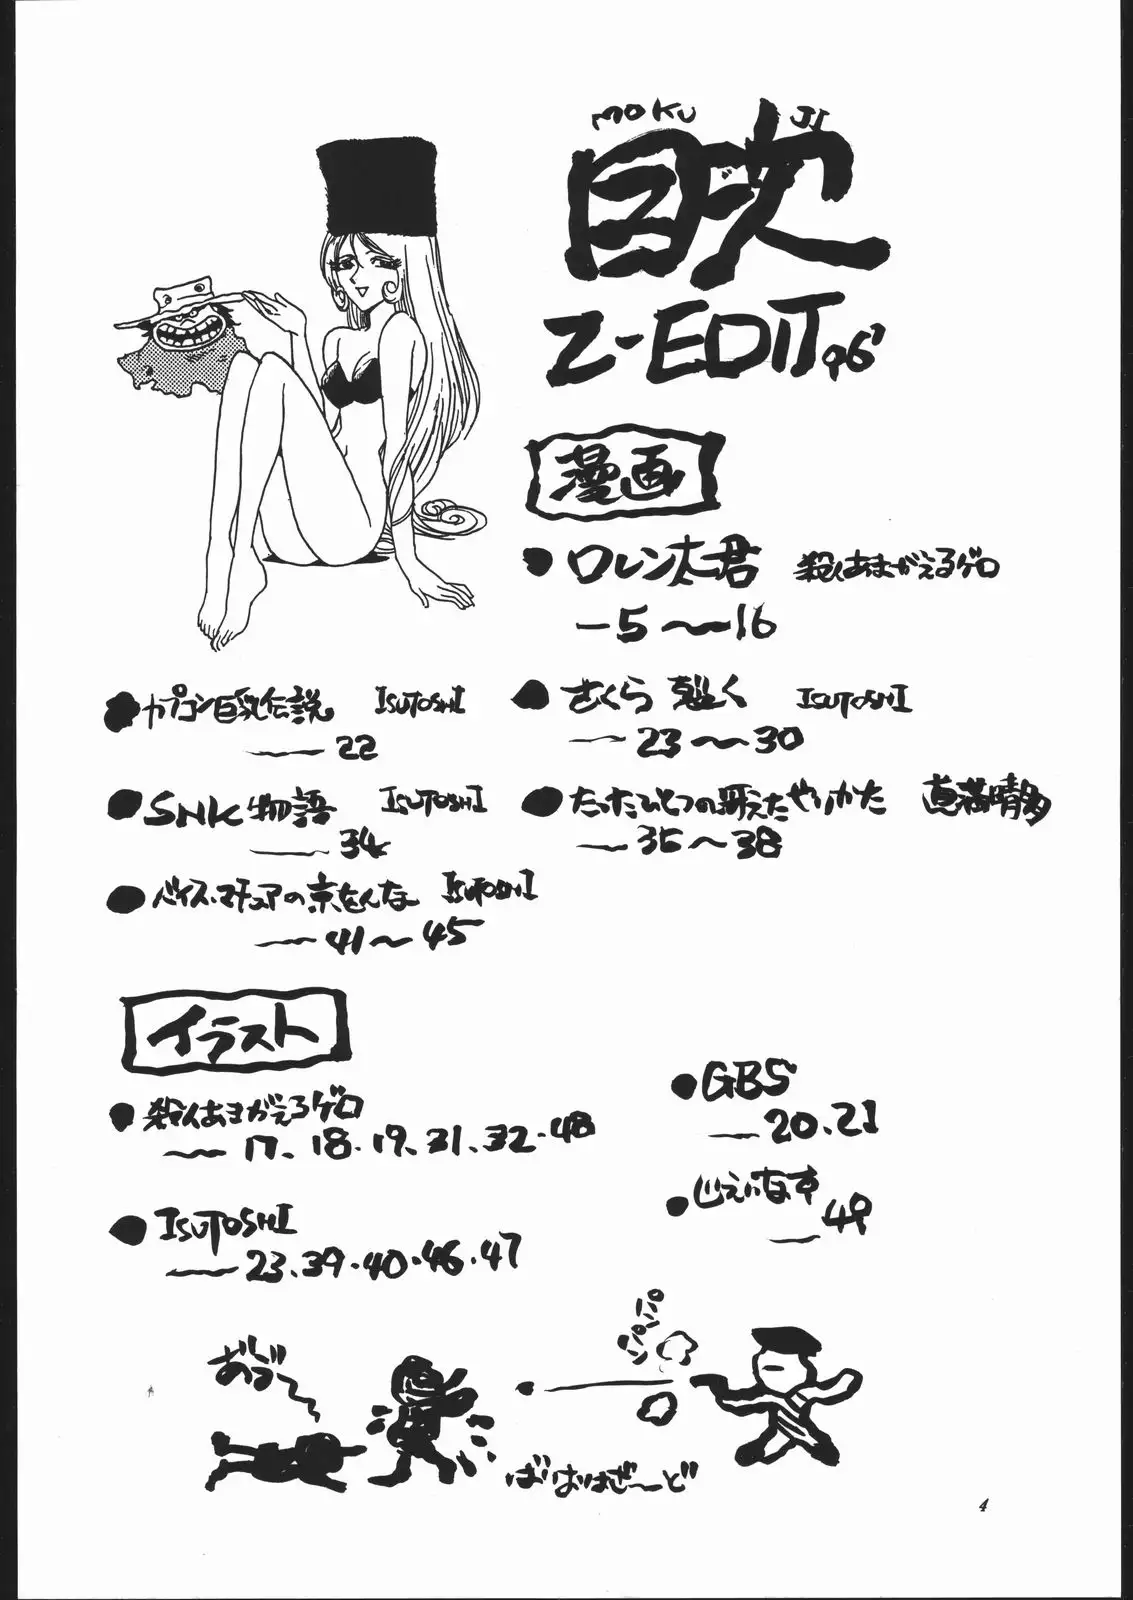 MOKU JI
目次
Z-EDIT 96'
漫画
● ロレン太君 殺人あまがえるゲロ
—5〜16
● カプコン巨乳伝説 ISUTOSHI
—22
● さくら 襲く ISUTOSHI
—23〜30
● SNK物語 ISUTOSHI
—34
● たったひとつの冴えたやりかた 真満晴多
—35〜38
● バイス・マチュアの京をんな ISUTOSHI
—41〜45
イラスト
● 殺人あまがえるゲロ
—17、18・19、31、32・48
● GBS
—20、21
● ISUTOSHI
—23、39・40・46・47
● じえいなす
—49
パンパンパン
あ゛う゛〜
ばいおはざーど
4